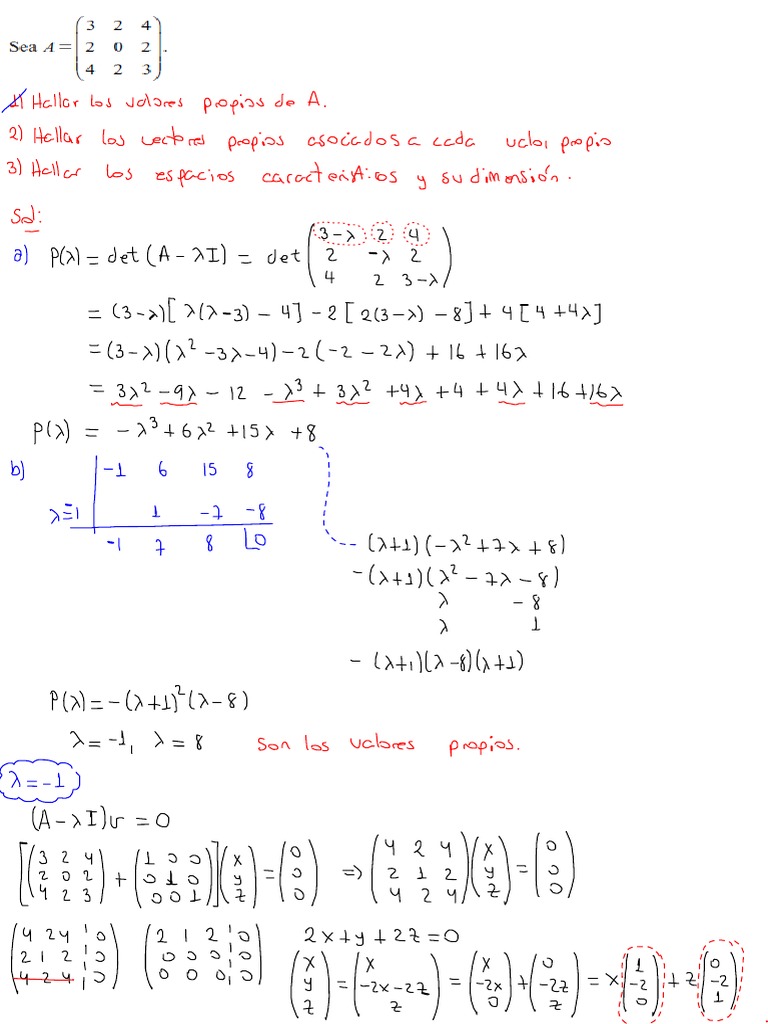 Sea A = (3 2 4
2 0 2
4 2 3).
1) Hallar los valores propios de A.
2) Hallar los vectores propios asociados a cada valor propio
3) Hallar los espacios característicos y su dimensión.
Sol:
a) P(λ) = det(A - λI) = det (3-λ 2 4
2 -λ 2
4 2 3-λ)
= (3-λ)[λ(λ-3) - 4] - 2[2(3-λ) - 8] + 4[4 + 4λ]
= (3-λ)(λ² - 3λ - 4) - 2(-2 - 2λ) + 16 + 16λ
= 3λ² - 9λ - 12 - λ³ + 3λ² + 4λ + 4 + 4λ + 16 + 16λ
P(λ) = -λ³ + 6λ² + 15λ + 8
b) -1 6 15 8
λ=-1 1 -7 -8
-1 7 8 |0
(λ+1)(-λ² + 7λ + 8)
-(λ+1)(λ² - 7λ - 8)
λ -8
λ 1
-(λ+1)(λ-8)(λ+1)
P(λ) = -(λ+1)²(λ-8)
λ = -1, λ = 8 Son los valores propios.
λ = -1
(A - λI)v = 0
[(3 2 4
2 0 2
4 2 3) + (1 0 0
0 1 0
0 0 1)] (x
y
z) = (0
0
0) ⇒ (4 2 4
2 1 2
4 2 4) (x
y
z) = (0
0
0)
(4 2 4 ¦ 0
2 1 2 ¦ 0
4 2 4 ¦ 0) (2 1 2 ¦ 0
0 0 0 ¦ 0
0 0 0 ¦ 0)
2x + y + 2z = 0
(x
y
z) = (x
-2x-2z
z) = (x
-2x
0) + (0
-2z
z) = x (1
-2
0) + z (0
-2
1)